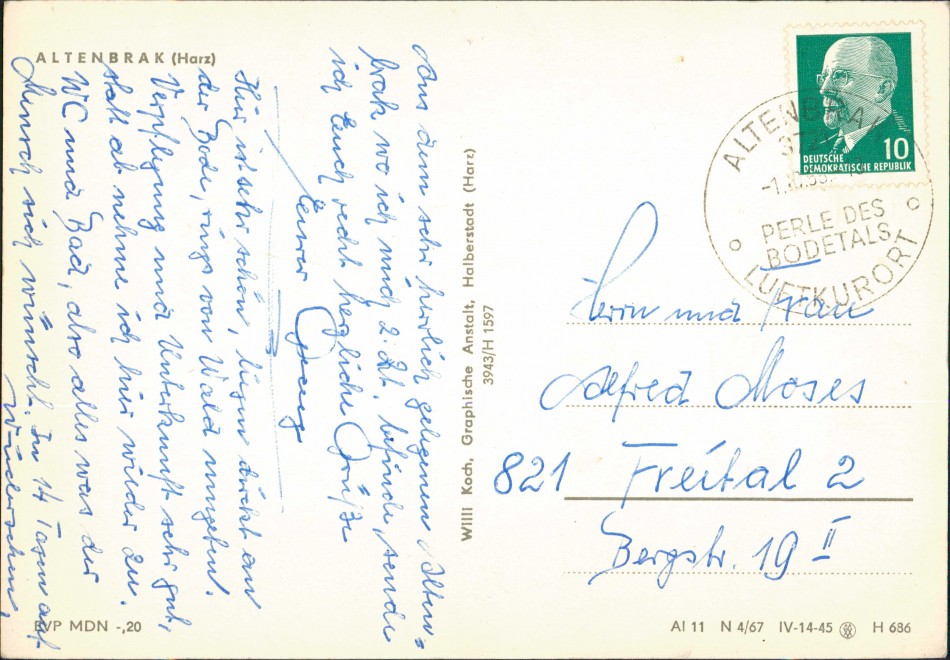 ALTENBRAK (Harz)
Aus dem sehr herrlich gelegenen Alten-
brak wo ich mich z. Zt. befinde, sende
ich Euch recht herzliche Grüße
Euer Georg
Hier ist sehr schön, liegen direkt an
der Bode, rings von Wald umgeben.
Verpflegung und Unterkunft sehr gut,
statt ab nehme ich hier wieder zu.
WC und Bad, also alles was der
Mensch sich wünscht. In 14 Tagen auf
Wiedersehen.
BVP MDN -,20
Willi Koch, Graphische Anstalt, Halberstadt (Harz)
3943/H 1597
DEUTSCHE
DEMOKRATISCHE REPUBLIK
10
ALTENBRAK
PERLE DES
BODETALS
LUFTKURORT
Herrn und Frau
Alfred Moses
821 Freital 2
Bergstr. 19 II
AI 11 N 4/67 IV-14-45 H 686